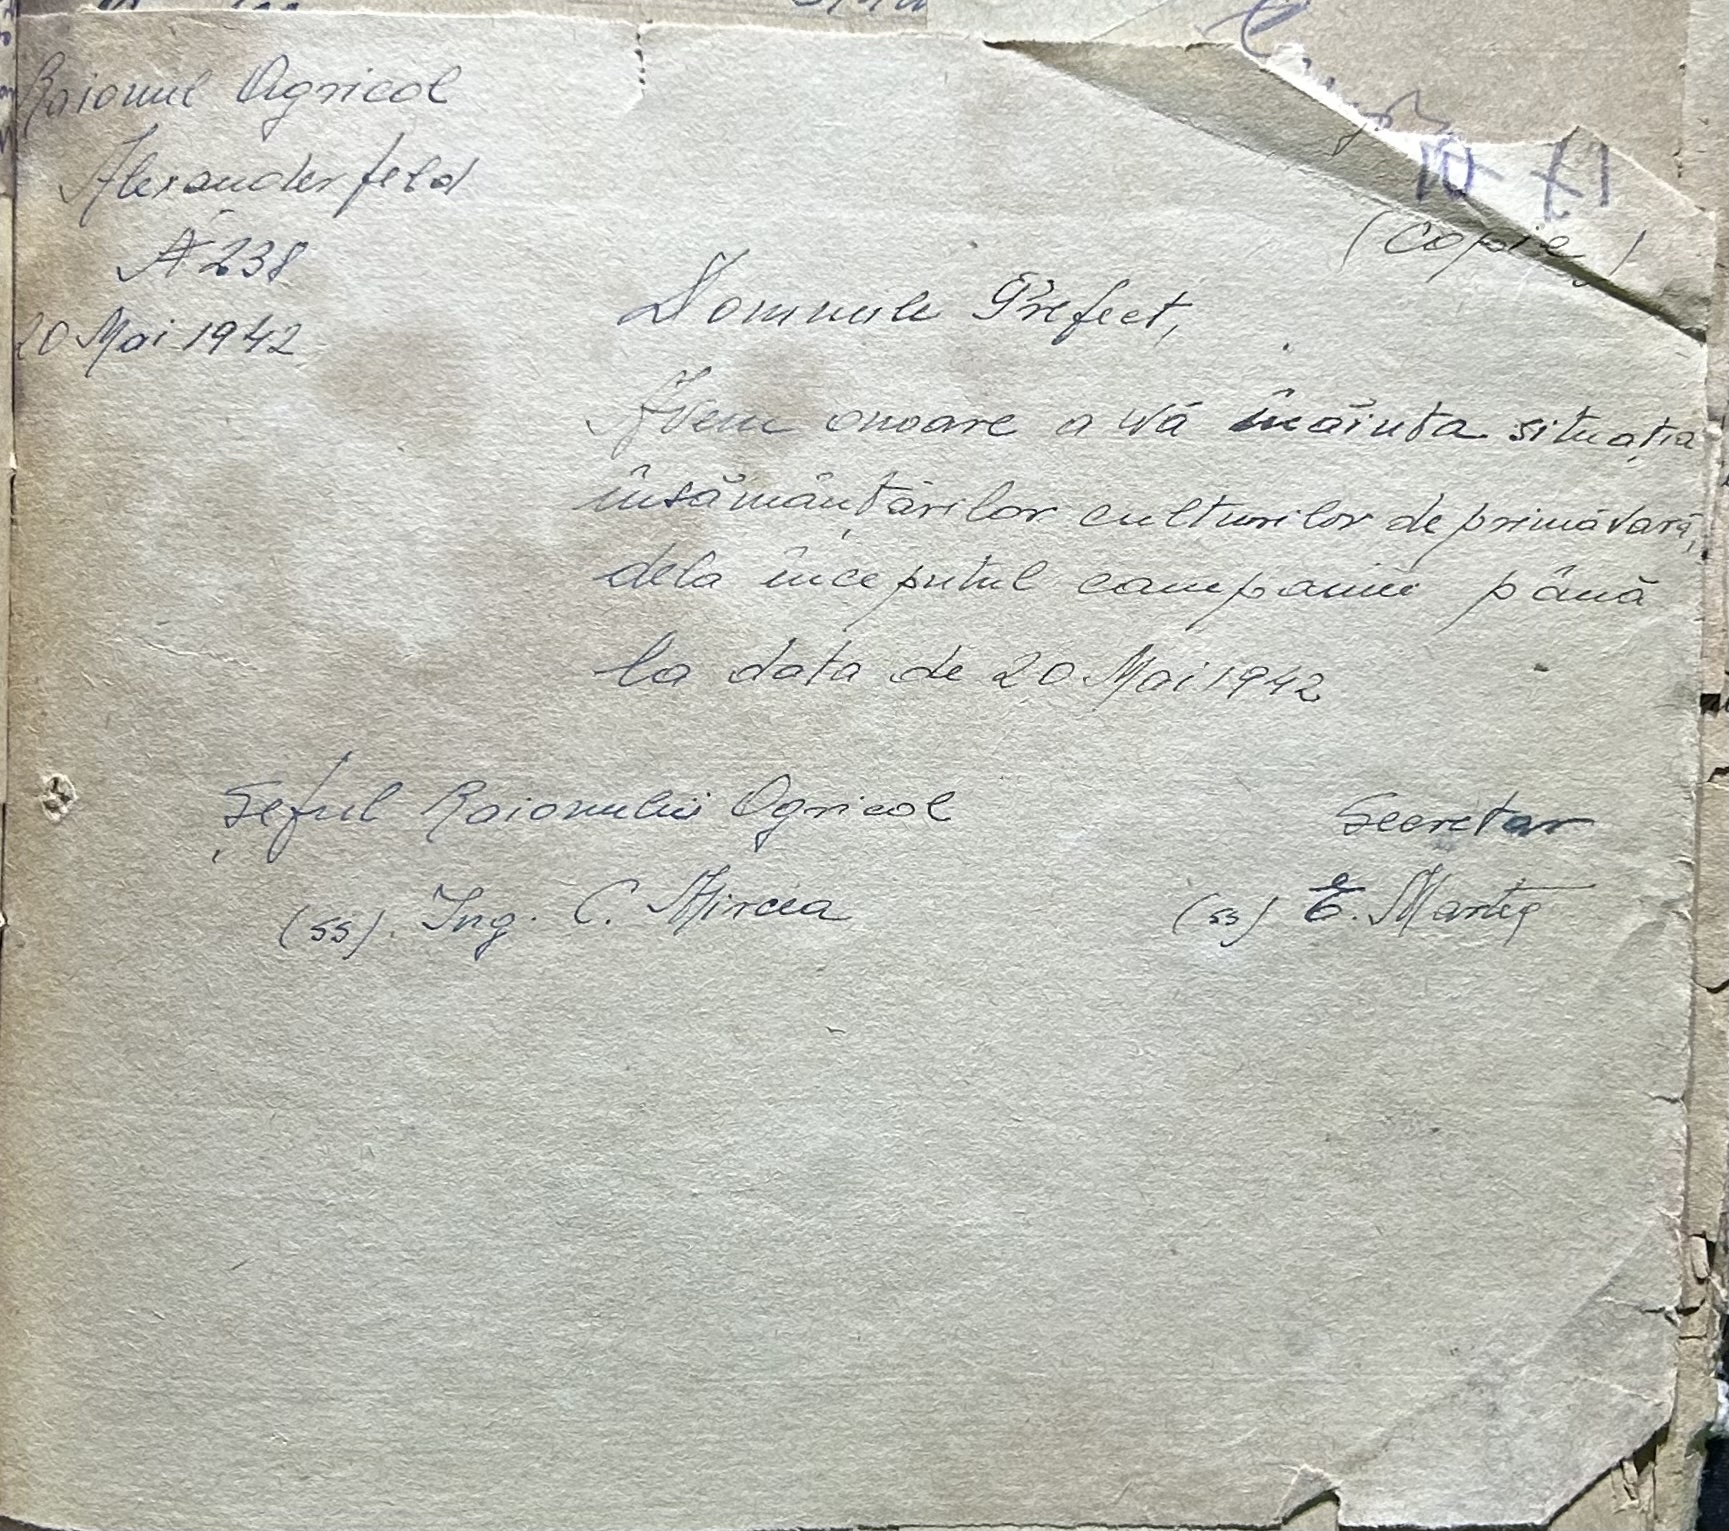 Raionul Agricol
Alexanderfeld
A 238
20 Mai 1942
(Copie)
Domnule Prefect,
Avem onoare a vă înăinta situația
însămânțărilor culturilor de primăvară,
dela începutul campaniei până
la data de 20 Mai 1942
Șeful Raionului Agricol
Secretar
(ss). Ing. C. Mircea
(ss) E.